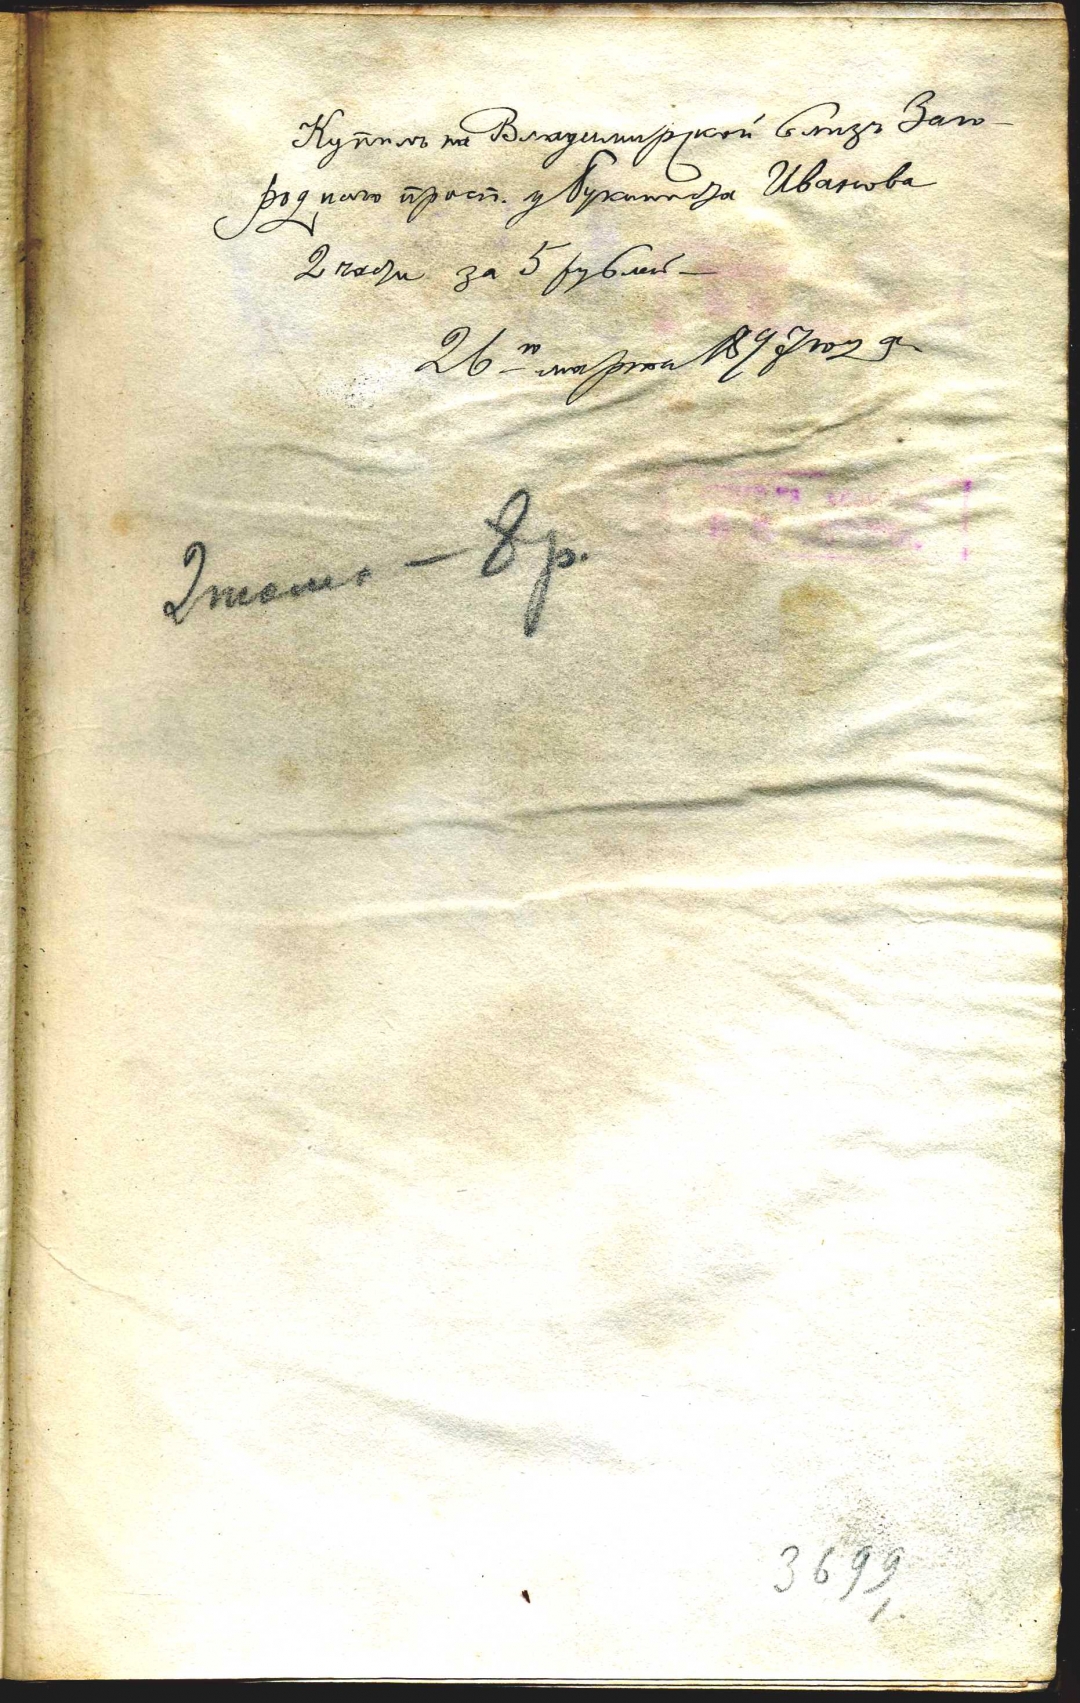 Купилъ на Владимирской близъ Заго-
роднаго просп. у букиниста Иванова
2 части за 5 рублей —
26го марта 1897 года.
2 тома — 8 р.
3699